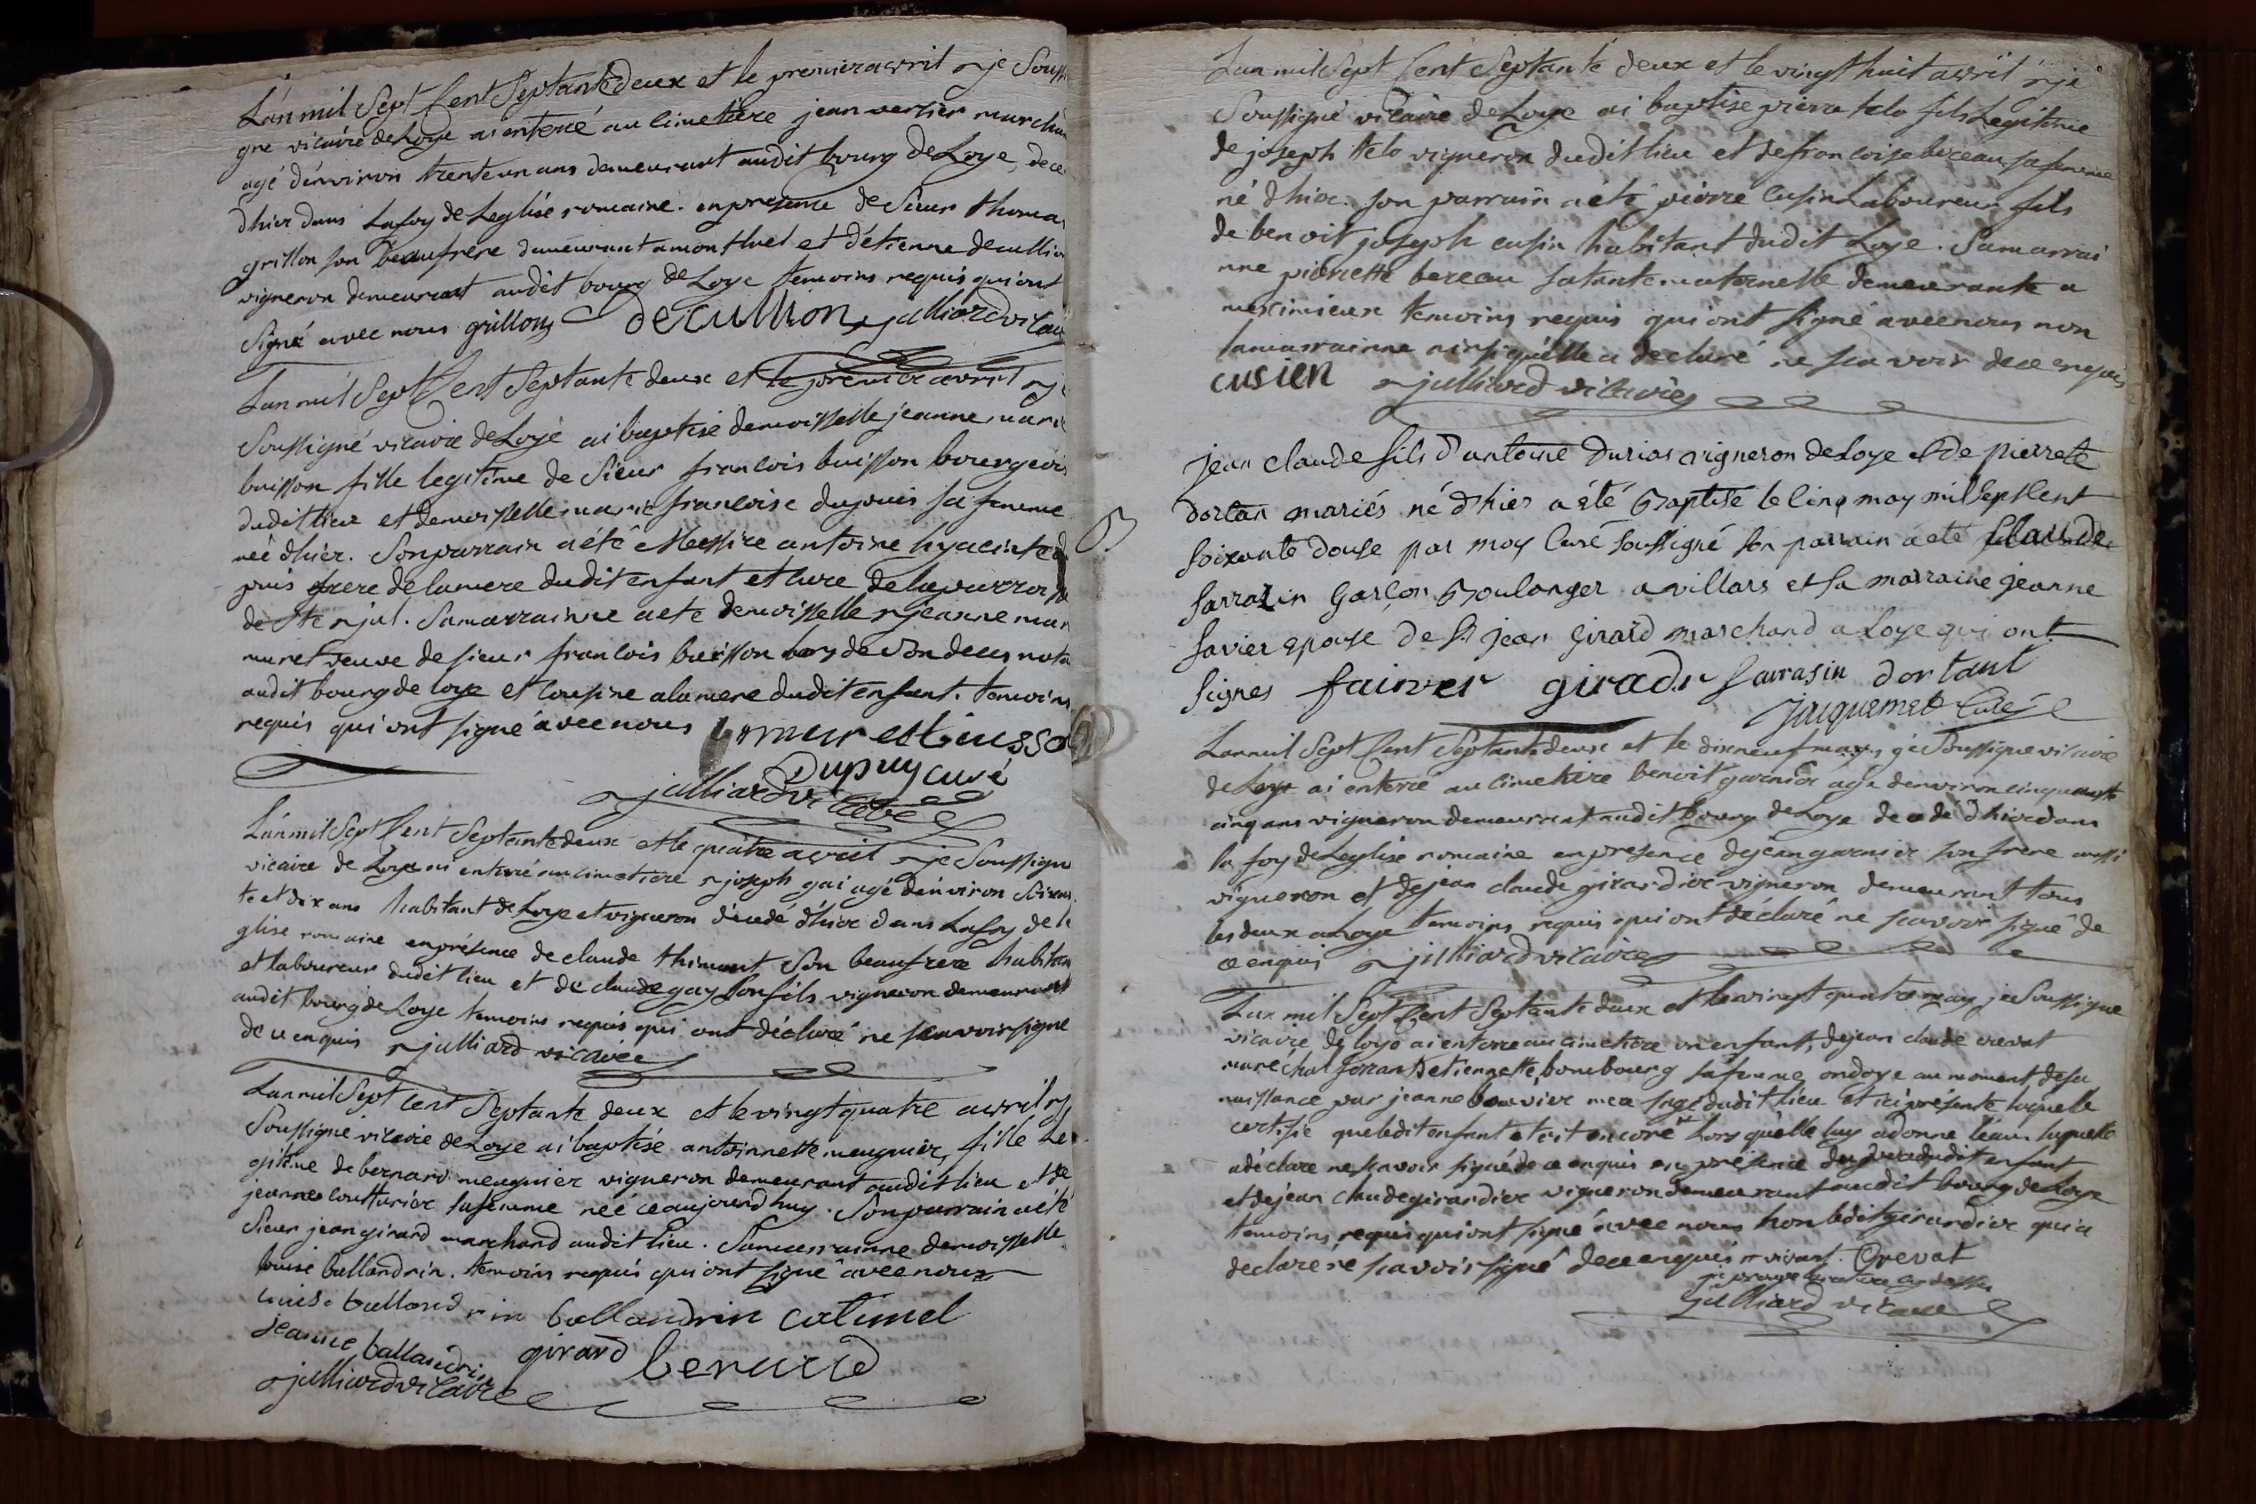 L'an mil Sept Cent Septante deux et le premier avril je Souss
gné vicaire de Loye ai enterré au cimetière jean verlier marchan
agé d'environ trente un ans demeurant audit bourg de Loye, dece
d'hier dans la foy de L'eglise romaine. en presence de Sieur thoma
grillon son beaufrere demeurant a montluel et d'étienne decullion
vigneron demeurant audit bourg de Loye temoins requis qui ont
Signé avec nous grillon decullion julliard vicai
L'an mil Sept Cent Septante deux et le premier avril je
Soussigné vicaire de Loye ai baptisé demoisselle jeanne marie
buisson fille legitime de Sieur francois buisson bourgeois
dudit lieu et demoisselle marie francoise dupuis sa femme
née d'hier. Son parrain a été Messire antoine hyacinte d
puis frere de la mere dudit enfant et curé de la parroisse
de Ste jul. Sa marrainne a eté demoisselle jeanne mar
muret veuve de sieur francois buisson nota
audit bourg de loye et Cousine a la mere dudit enfant. temoins
requis qui ont signé avec nous buisso
Dupuy curé
julliard vicaire
L'an mil Sept Cent Septante deux et le quatre avril je Soussigne
vicaire de Loye ai enterré au cimetiere joseph gai agé d'environ Soixan
te et dix ans habitant de Loye et vigneron décédé d'hier dans La foy de l'e
glise romaine en présence de claude thimont Son beaufrere habitan
et laboureur dudit lieu et de claude gay Son fils vigneron demeurant
audit bourg de Loye temoins requis qui ont déclaré ne scavoir signe
de ce enquis julliard vicaire
L'an mil Sept Cent Septante deux et le vingt quatre avril je
Soussigné vicaire de Loye ai baptisé antoinnette meugnier, fille Le
gitime de bernard meugnier vigneron demeurant audit lieu et de
jeanne coutturier sa femme née ce aujourd'huy. Son parrain a été
Sieur jean girard marchand audit lieu. Sa marrainne demoisselle
louise ballandrin. temoins requis qui ont signé avec nous
louise balland rin ballandrin catimel
jeanne ballandrin girard berard
julliard vicaire
L'an mil Sept Cent Septante deux et le vingt huit avril je
Soussigné vicaire de Loye ai baptisé pierre telo fils Legitime
de joseph telo vigneron dudit lieu et de francoise bereau sa femme
né d'hier. son parrain a été pierre cusin Laboureur fils
de benoit joseph cusin habitant dudit Loye. Sa marrai
nne pierrette bereau sa tante maternelle demeurante a
meximieux temoins requis qui ont signé avec nous non
la marrainne ainsi qu'elle a declaré ne scavoir de ce enquis
cusien julliard vicaire
jean claude fils d'antoine durios vigneron de Loye et de pierrete
dortan mariés né d'hier a été Baptisé le cinq may mil Sept Cent
soixante douse par moy Curé soussigné son parrain a eté Claude
sarrazin garçon Boulanger a villars et sa marraine jeanne
favier epouse de Sr jean girard marchand a Loye qui ont
signes faivver giradr Sarrasin dortant
Jacquemet Curé
L'an mil Sept Cent Septante deux et le dix neuf may, je Soussigne vicaire
de Loye ai enterré au cimetiere benoit garnier agé d'environ cinquante
cinq ans vigneron demeurant audit bourg de Loye decedé d'hier dans
la foy de L'eglise romaine en presence de jean garnier son frere aussi
vigneron et de jean claude girardier vigneron demeurant tous
les deux a Loye temoins requis qui ont déclaré ne scavoir signé de
ce enquis julliard vicaire
L'an mil Sept Cent Septante deux et le vingt quatre may je Soussigne
vicaire de loye ai enterré au cimetiere un enfant, de jean claude crevat
maréchal ferrant et etiennette bombourg sa femme ondoyé au moment de sa
naissance par jeanne bouvier mere sage dudit lieu et ici présente laquelle
certifie que ledit enfant etoit encore Lors qu'elle luy a donné l'eau laquelle
a déclaré ne scavoir signé de ce enquis en présence du pere dudit enfant
et de jean claude girardier vigneron demeurant audit bourg de Loye
temoins requis qui ont signé avec nous non ledit girardier qui a
declaré ne scavoir signé de ce enquis vivant. Crevat
julliard vicaire